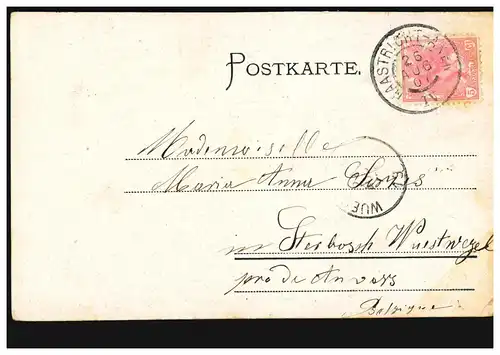 POSTKARTE.
MAASTRICHT
26
AUG
07
IV
Mademoiselle
Maria Anna
WUE
in Sterbosch Wuestwezel
près de Anvers
Belgique